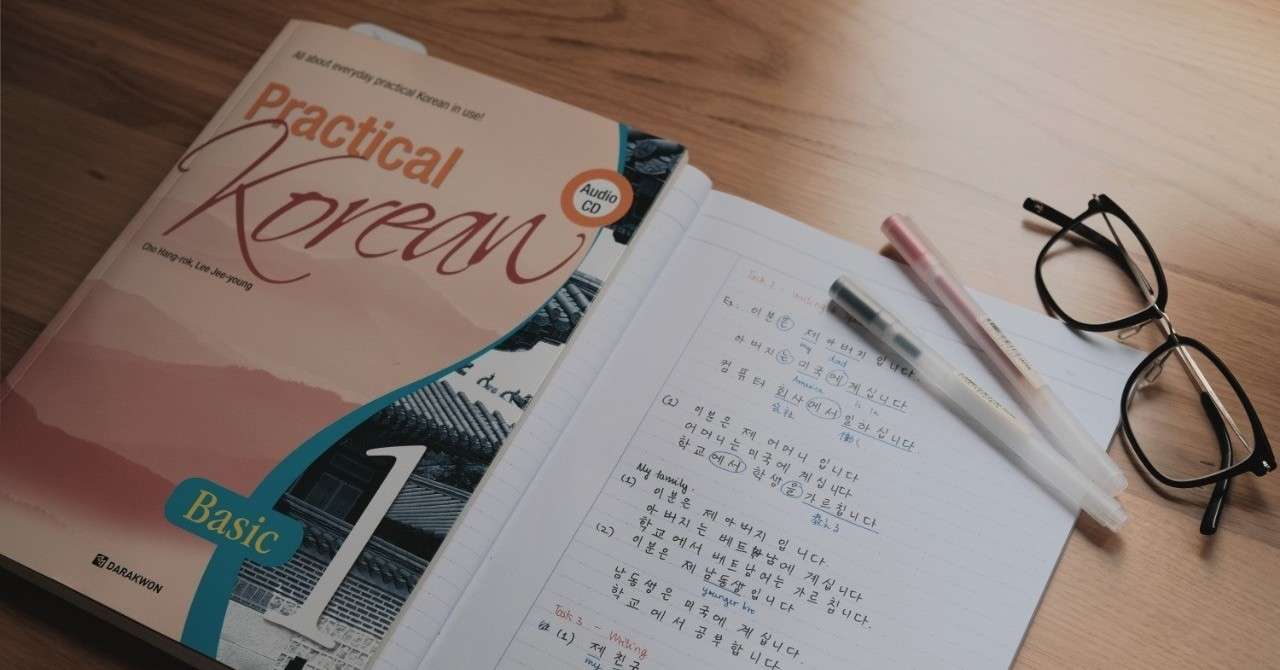 All about everyday practical Korean in use!
Practical
Korean
Audio
CD
Cho Hang-rok, Lee Jee-young
Basic
1
DARAKWON
Ex: 이분은 제 아버지 입니다.
my dad
아버지는 미국에 계십니다
America is in
컴퓨터 회사에서 일하십니다.
会社 働く
(2) 이분은 제 어머니 입니다
어머니는 미국에 계십니다
학교에서 학생을 가르칩니다
教える
My family
(1) 이분은 제 아버지 입니다.
아버지는 베트남에 계십니다
학교에서 베트남어는 가르칩니다.
(2) 이분은 제 남동생입니다
younger bro
남동생은 미국에 계십니다.
학교에서 공부합니다.
Task 3 - Writing
(1) 제 친구
my